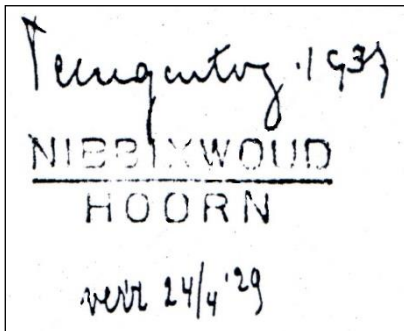 Terugontv. 1937
NIBBIXWOUD
HOORN
verz 24/4 '29